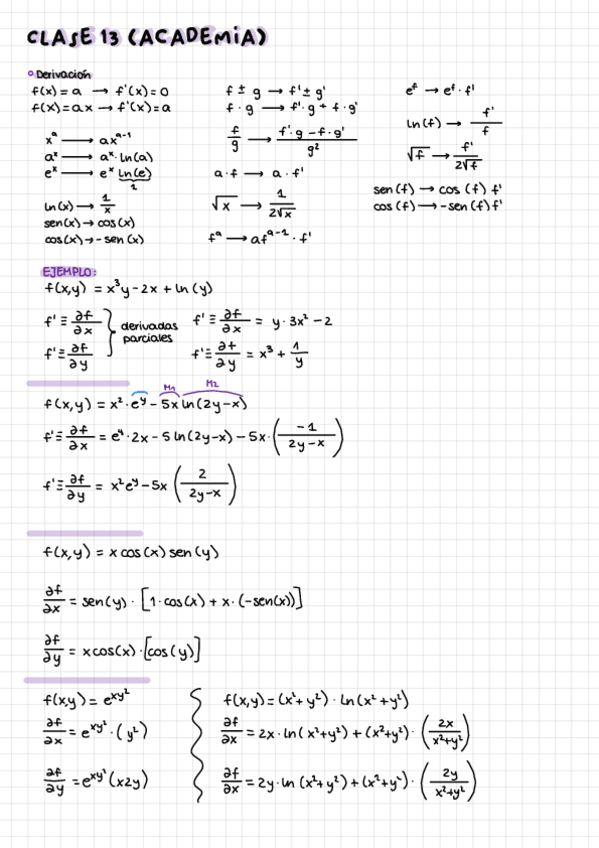 CLASE 13 (ACADEMiA)
Derivación
f(x) = a → f'(x) = 0
f(x) = ax → f'(x) = a
x^a → ax^(a-1)
a^x → a^x · ln(a)
e^x → e^x ln(e)
1
ln(x) → 1/x
sen(x) → cos(x)
cos(x) → - sen(x)
f ± g → f' ± g'
f · g → f' · g + f · g'
f/g → (f' · g - f · g')/g²
a · f → a · f'
√x → 1/(2√x)
f^a → af^(a-1) · f'
e^f → e^f · f'
ln(f) → f'/f
√f → f'/(2√f)
sen(f) → cos(f) f'
cos(f) → - sen(f) f'
EJEMPLO:
f(x,y) = x³y - 2x + ln(y)
f' ≡ ∂f/∂x
f' ≡ ∂f/∂y
derivadas
parciales
f' ≡ ∂f/∂x = y · 3x² - 2
f' ≡ ∂f/∂y = x³ + 1/y
M1 M2
f(x,y) = x² · e^y - 5x ln(2y-x)
f' ≡ ∂f/∂x = e^y · 2x - 5 ln(2y-x) - 5x · (-1/(2y-x))
f' ≡ ∂f/∂y = x²e^y - 5x (2/(2y-x))
f(x,y) = x cos(x) sen(y)
∂f/∂x = sen(y) · [1 · cos(x) + x · (-sen(x))]
∂f/∂y = x cos(x) · [cos(y)]
f(x,y) = e^(xy²)
∂f/∂x = e^(xy²) · (y²)
∂f/∂y = e^(xy²) (x2y)
f(x,y) = (x² + y²) · ln(x² + y²)
∂f/∂x = 2x · ln(x²+y²) + (x²+y²) · (2x/(x²+y²))
∂f/∂x = 2y · ln(x²+y²) + (x²+y²) · (2y/(x²+y²))